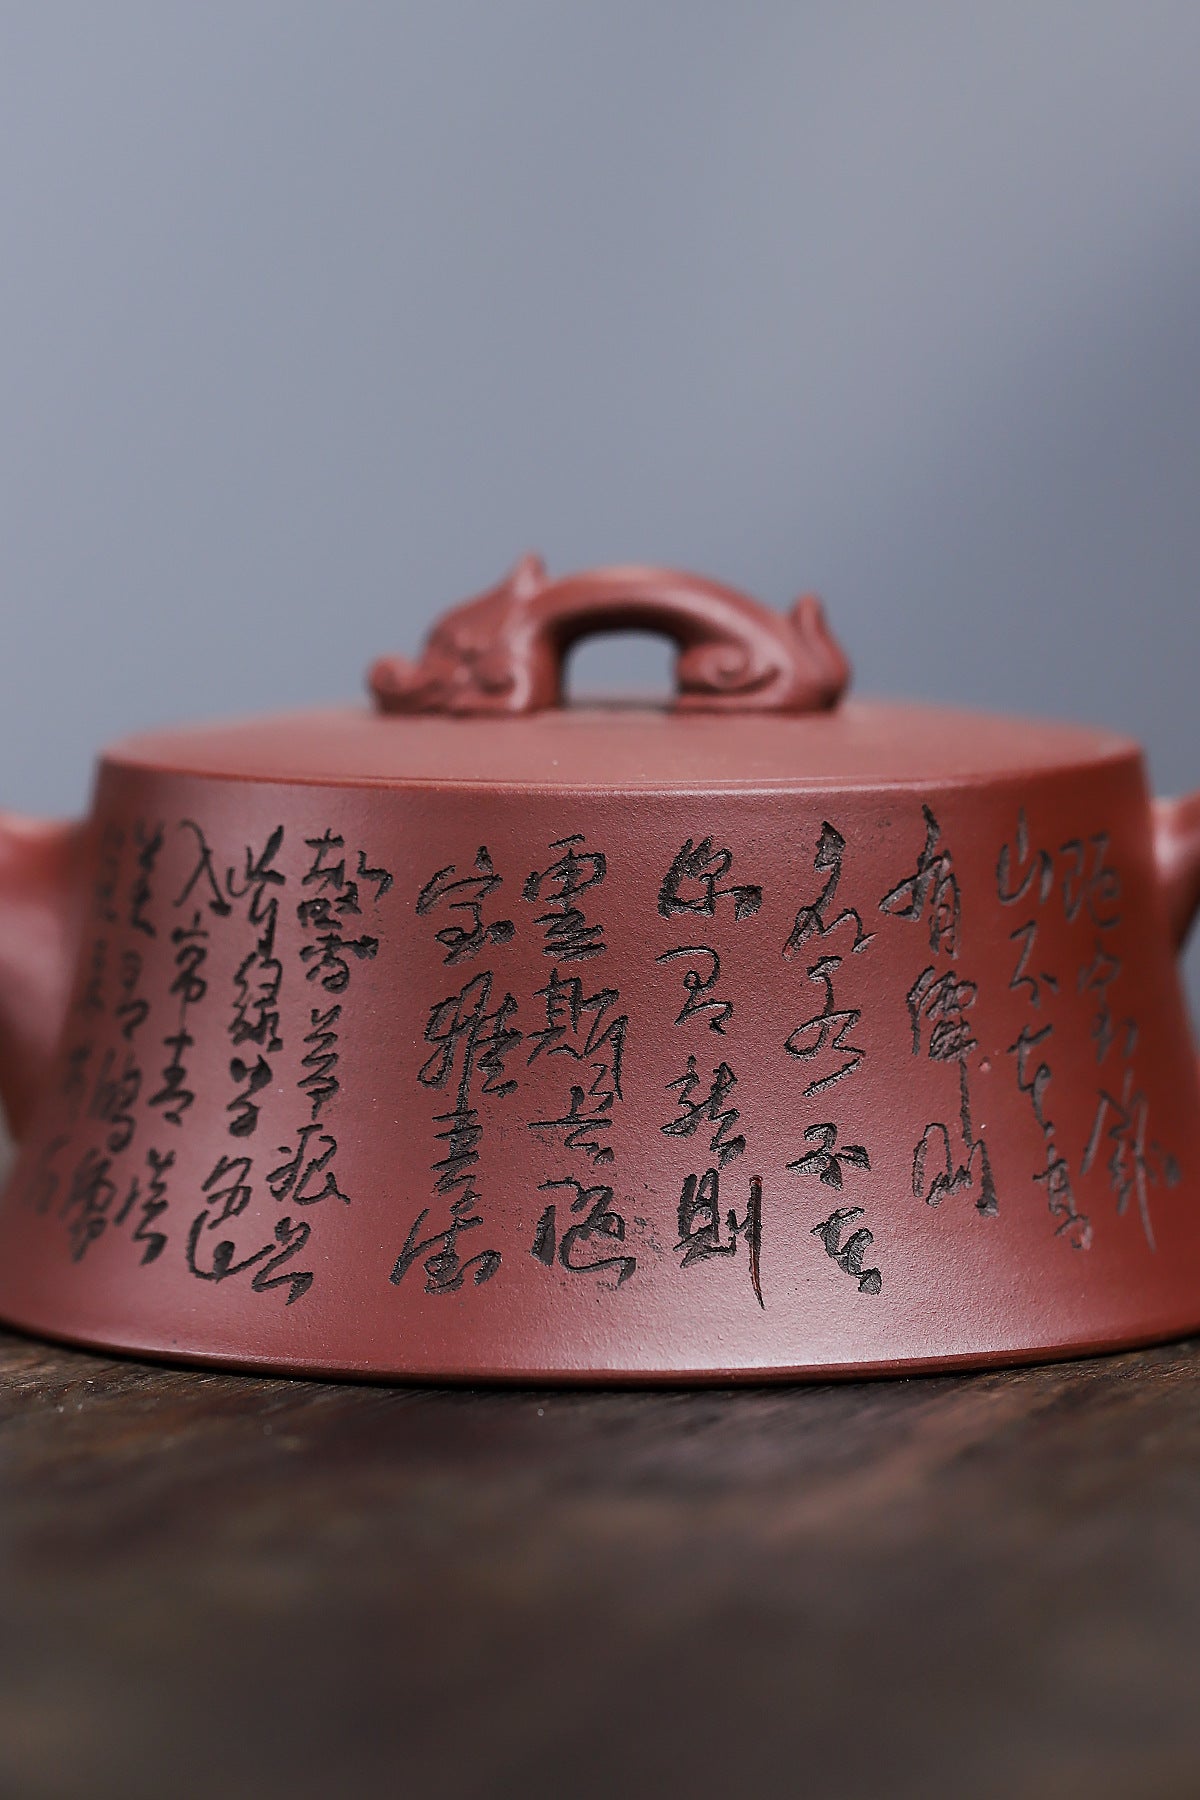 陋室銘
山不在高
有僊則
名水不在
深有龍則
靈斯是陋
室惟吾德
馨苔痕上
階綠草色
入帘青談
笑有鴻儒